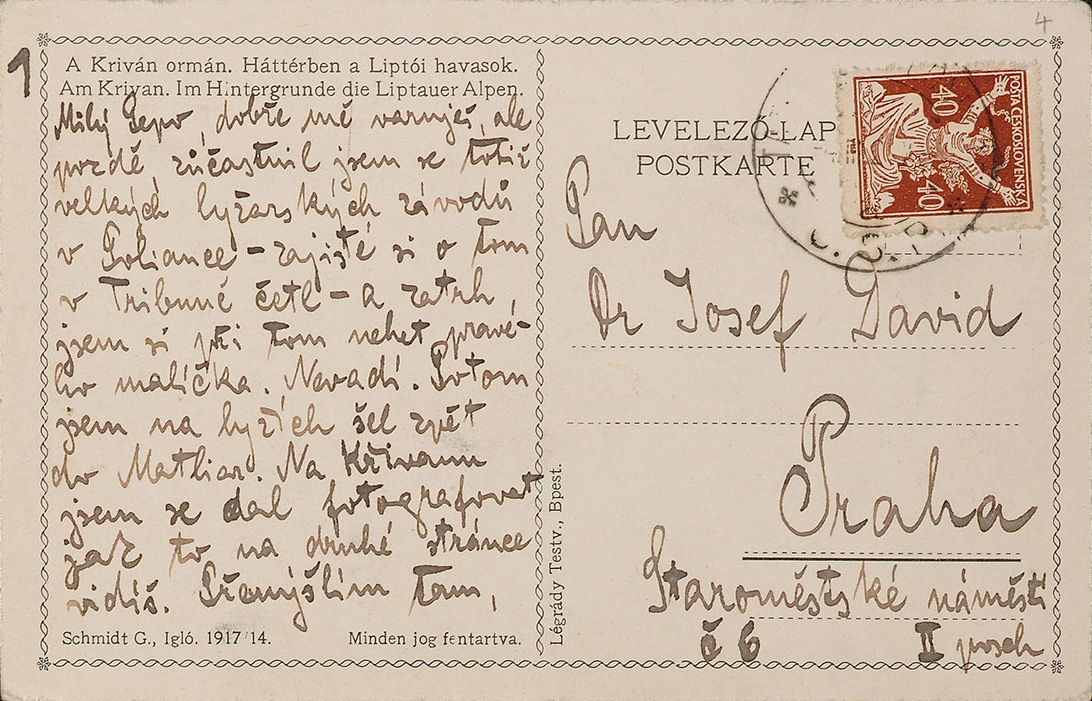 4
1
A Kriván ormán. Háttérben a Liptói havasok.
Am Krivan. Im Hintergrunde die Liptauer Alpen.
Milý Pepo, dobře mě varuješ, ale
pozdě, zúčastnil jsem se totiž
velkých lyžařských závodů
v Poliance – zajisté si o tom
v Tribuně četl – a zatrh
jsem si při tom nehet pravé-
ho malíčka. Nevadí. Potom
jsem na lyžích šel zpět
do Matliar. Na Křivanu
jsem se dal fotografovat
jak to na druhé stránce
vidíš. Přemýšlím tam,
Schmidt G., Igló. 1917/14.
Minden jog fentartva.
Légrády Testv., Bpest.
LEVELEZŐ-LAP
POSTKARTE
POŠTA ČESKOSLOVENSKÁ
40
40
Pan
Dr Josef David
Praha
Staroměstské náměstí
č 6 II posch